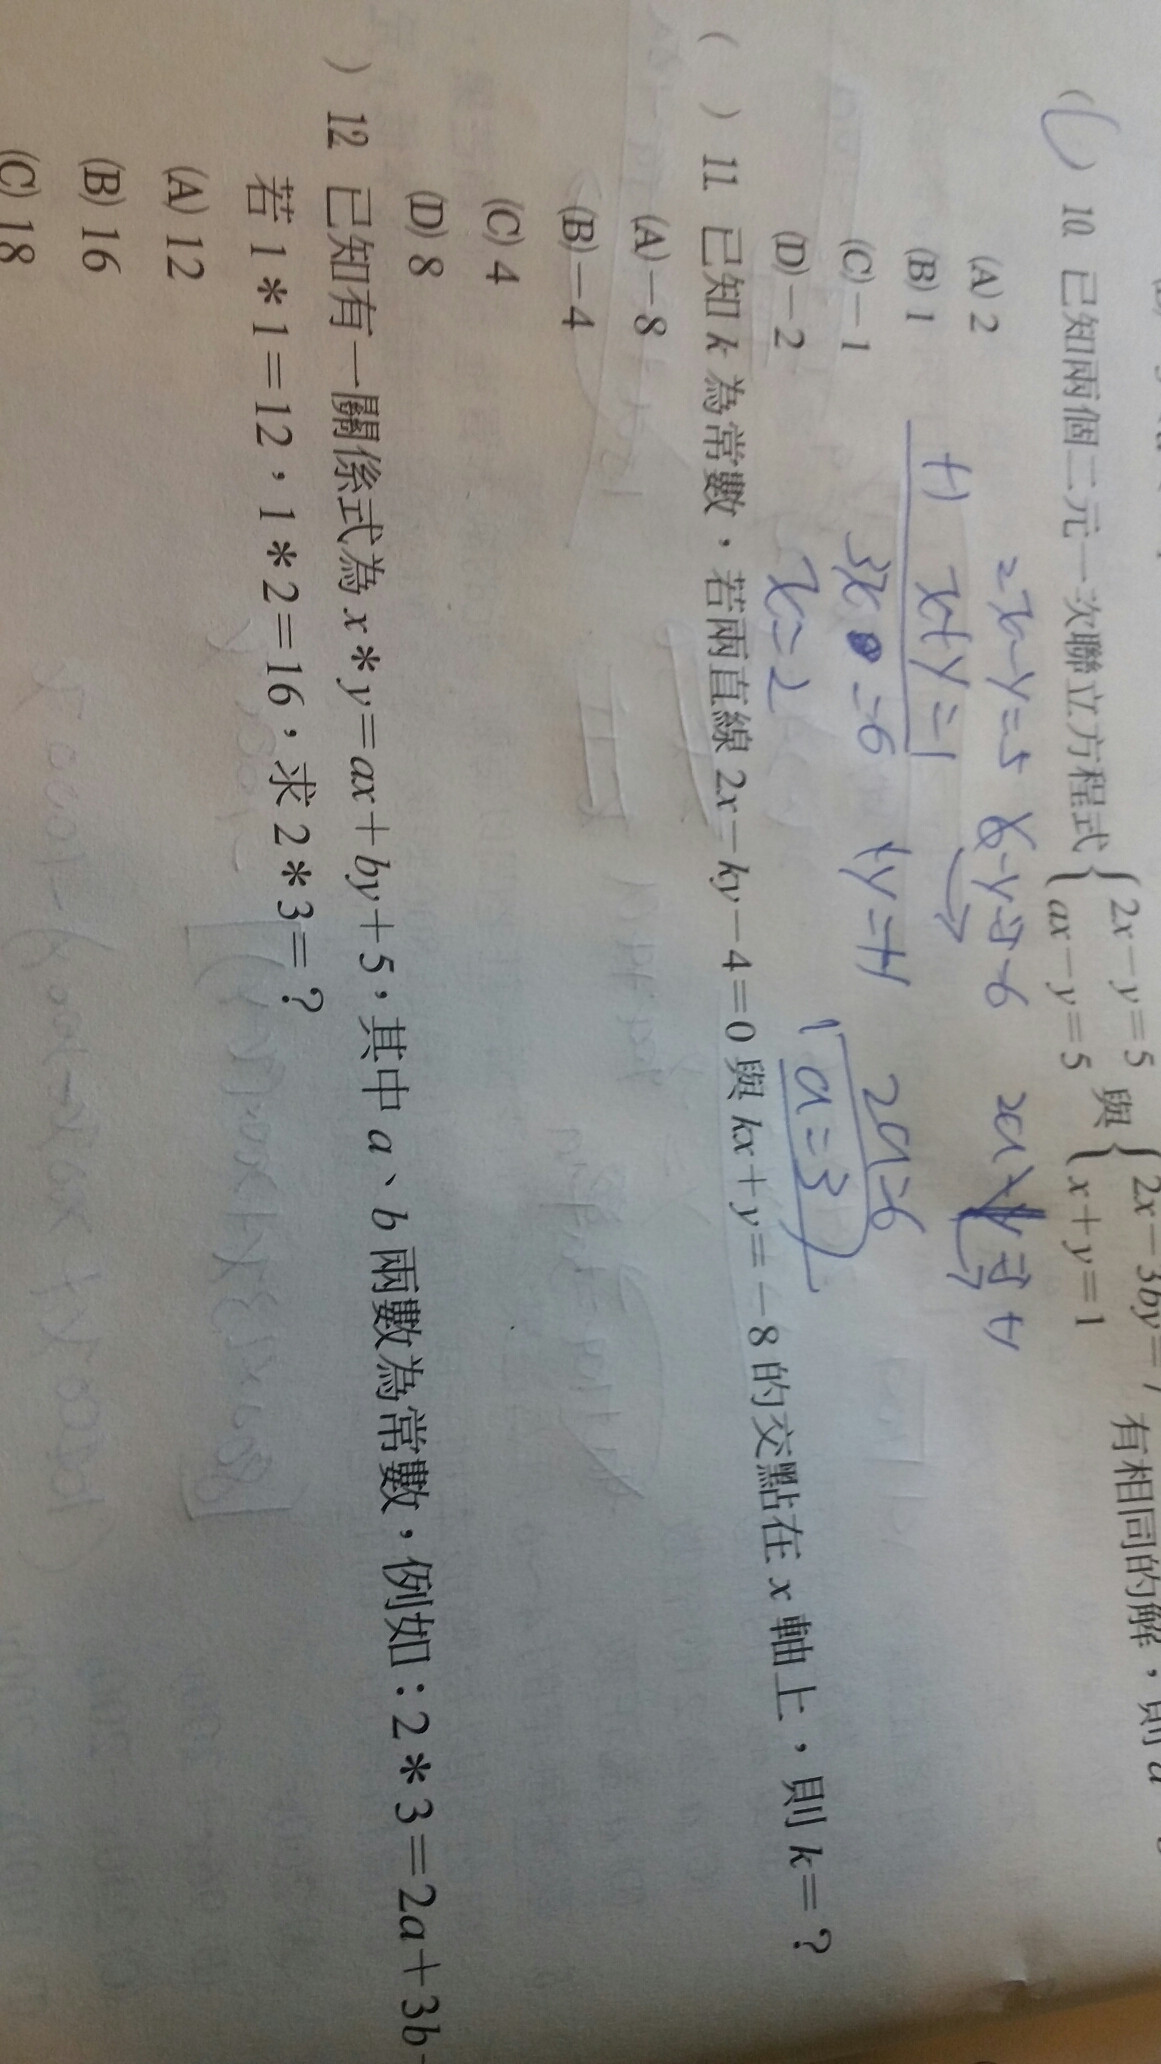 10. 已知兩個二元一次聯立方程式 { 2x－y＝5 與 { 2x－3by＝7 有相同的解，則 a
ax－y＝5 x＋y＝1
(A) 2
(B) 1
(C)－1
(D)－2
2x-y=5
+) x+y=1
3x =6
x=2
2a=6
a=3
( ) 11. 已知 k 為常數，若兩直線 2x－ky－4＝0 與 kx＋y＝－8 的交點在 x 軸上，則 k＝？
(A)－8
(B)－4
(C) 4
(D) 8
) 12. 已知有一關係式為 x＊y＝ax＋by＋5，其中 a、b 兩數為常數，例如：2＊3＝2a＋3b
若 1＊1＝12，1＊2＝16，求 2＊3＝？
(A) 12
(B) 16
(C) 18